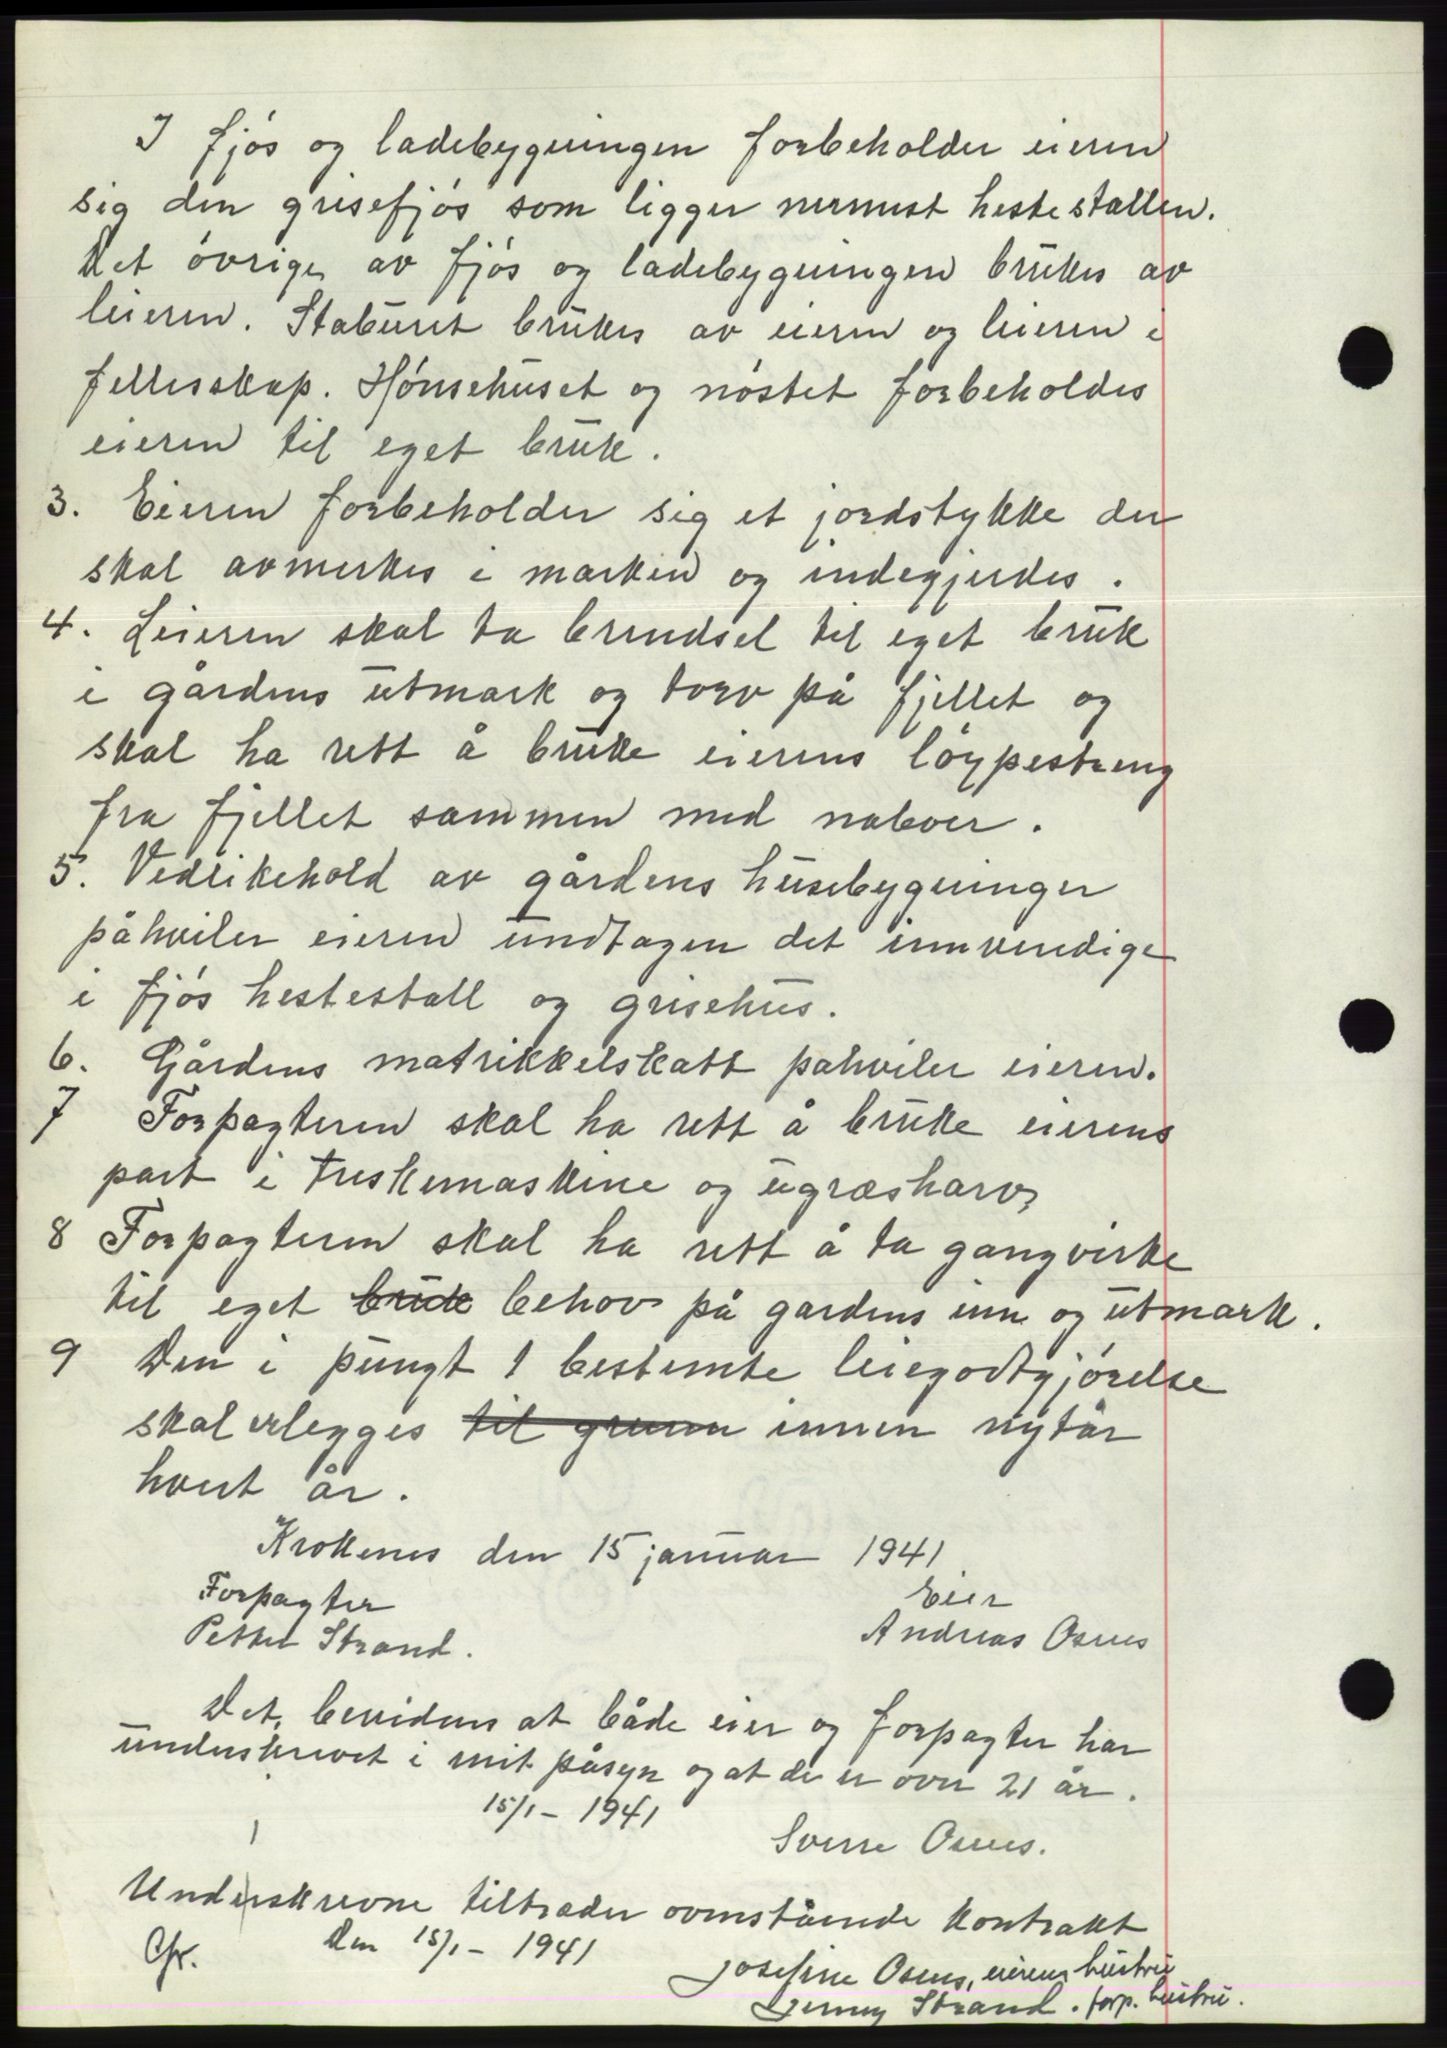 I fjós og ladebygningen forbeholder eieren
sig den grisefjós som ligger nermest hestestallen.
Det óvrige av fjós og ladebygningen brukes av
leieren. Staburet brukes av eieren og leieren i
fellesskap. Hónsehuset og nóstet forbeholdes
eieren til eget bruk.
3. Eieren forbeholder sig et jordstykke der
skal avmerkes i marken og indegjerdes.
4. Leieren skal ta brendsel til eget bruk
i gårdens utmark og torv på fjellet og
skal ha rett å bruke eierens lóypestreng
fra fjellet sammen med naboer.
5. Vedlikehold av gårdens husebygninger
påhviler eieren undtagen det innvendige
i fjós hestestall og grisehus.
6. Gårdens matrikkelskatt påhviler eieren.
7 Forpagteren skal ha rett å bruke eierens
part i treskemaskine og ugræsharv,
8 Forpagteren skal ha rett å ta gangvirke
til eget bruk behov på gardens inn og utmark.
9 Den i pungt 1 bestemte leiegodtgjórelse
skal erlegges til grunn innen nytår
hvert år.
Krokenes den 15 januar 1941
Forpagter Eier
Petter Strand. Andreas Osnes
Det, bevidnes at både eier og forpagter har
underskrevet i mit påsyn og at de er over 21 år.
15/1 - 1941
Sverre Osnes.
Underskrevne tiltræder ovenstående kontrakt
Den 15/1 - 1941
Josefine Osnes, eierens hustru
Jenny Strand. forp. hustru.